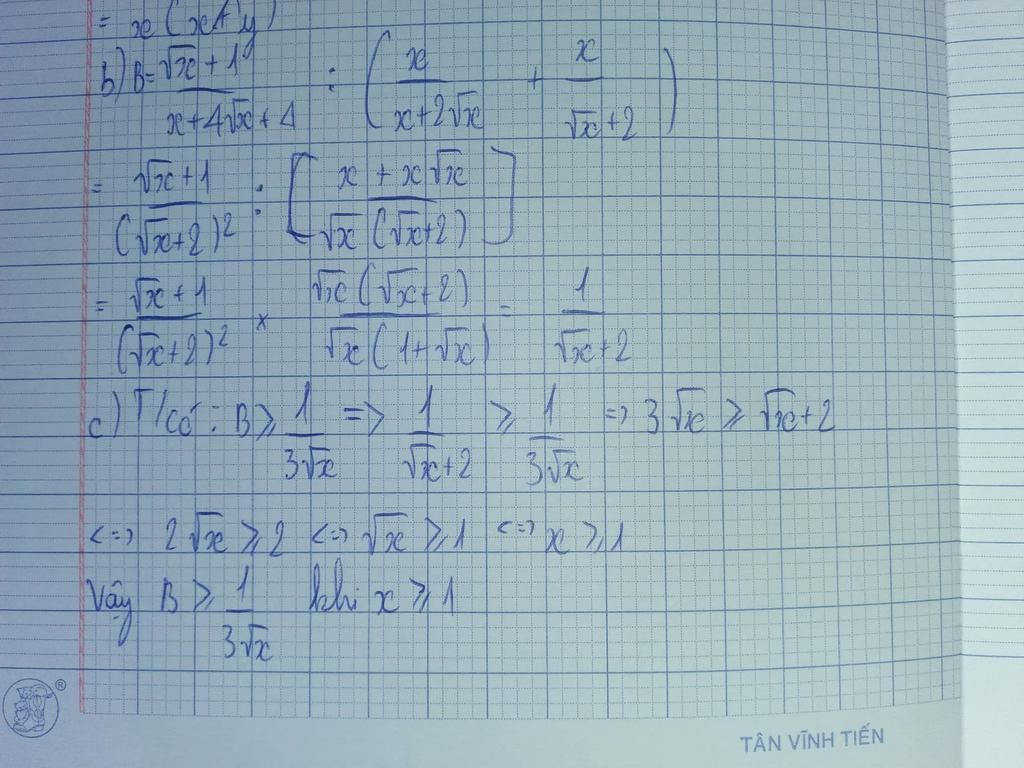 = x (x+y)
b) B = (√x + 1)/(x + 4√x + 4) : ( x/(x + 2√x) + x/(√x + 2) )
= (√x + 1)/(√x + 2)² : [ (x + x√x)/(√x (√x + 2)) ]
= (√x + 1)/(√x + 2)² × (√x (√x + 2))/(√x (1 + √x)) = 1/(√x + 2)
c) T/có : B ≥ 1/(3√x) => 1/(√x + 2) ≥ 1/(3√x) => 3√x ≥ √x + 2
<=> 2√x ≥ 2 <=> √x ≥ 1 <=> x ≥ 1
Vậy B ≥ 1/(3√x) khi x ≥ 1
®
TÂN VĨNH TIẾN